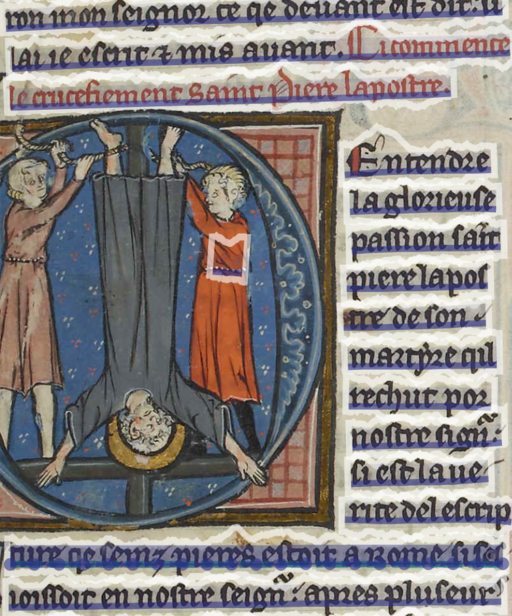 mon seignor ce qe deuant est dit. ⁊
lai ie escrit ⁊ mis auant. Ci commence
le crucefiement saint Piere lapostre.
Entendre
la glorieuse
passion saīt
piere lapos
tre de son
martyre quil
rechut por
nostre signͬ.
si est la ue
rite del escrip
ture qe seinz pieres estoit a Rome si sesi
ioissoit en nostre seignͬ. apres pluseurs